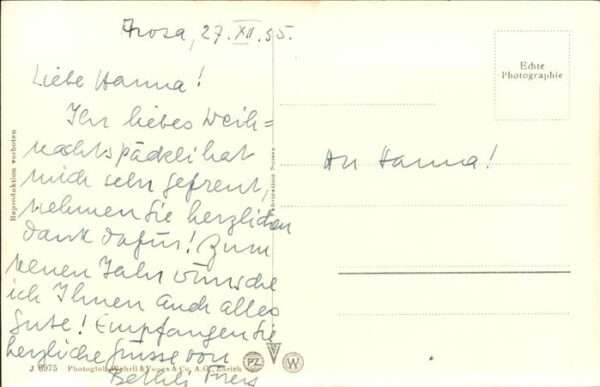 Arosa, 27. XII. 55.
Echte
Photographie
Liebe Hanna!
Ihr liebes Weih=
nachtspäckli hat
mich sehr gefreut,
nehmen Sie herzlichen
Dank dafür! Zum
neuen Jahr wünsche
ich Ihnen auch alles
Gute! Empfangen Sie
herzliche Grüsse von
Bethli
An Hanna!
Reproduktion verboten
J 6975 Photoglob-Wehrli & Vouga & Co. A.G. Zürich
PZ
W